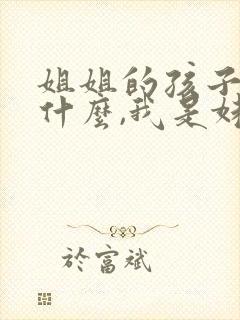 姐姐的孩子
什麼,我是妹
於富斌